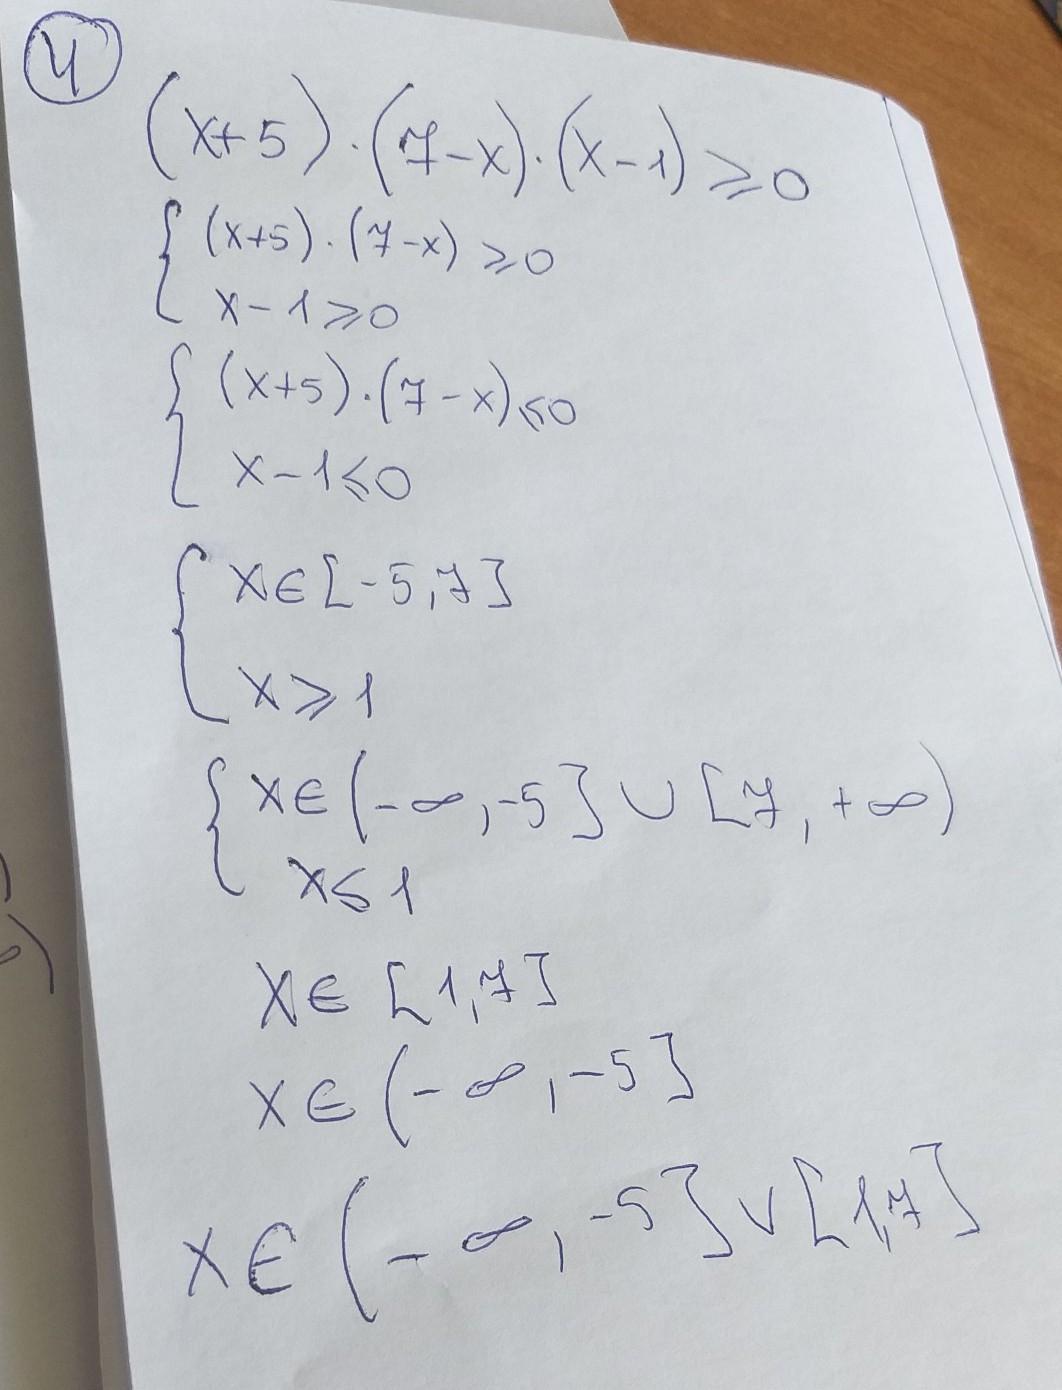 4
(x+5)·(7-x)·(x-1)⩾0
{ (x+5)·(7-x)⩾0
x-1⩾0
{ (x+5)·(7-x)⩽0
x-1⩽0
{ x∈[-5,7]
x⩾1
{ x∈(-∞,-5]∪[7,+∞)
x⩽1
x∈[1,7]
x∈(-∞,-5]
x∈(-∞,-5]∨[1,7]